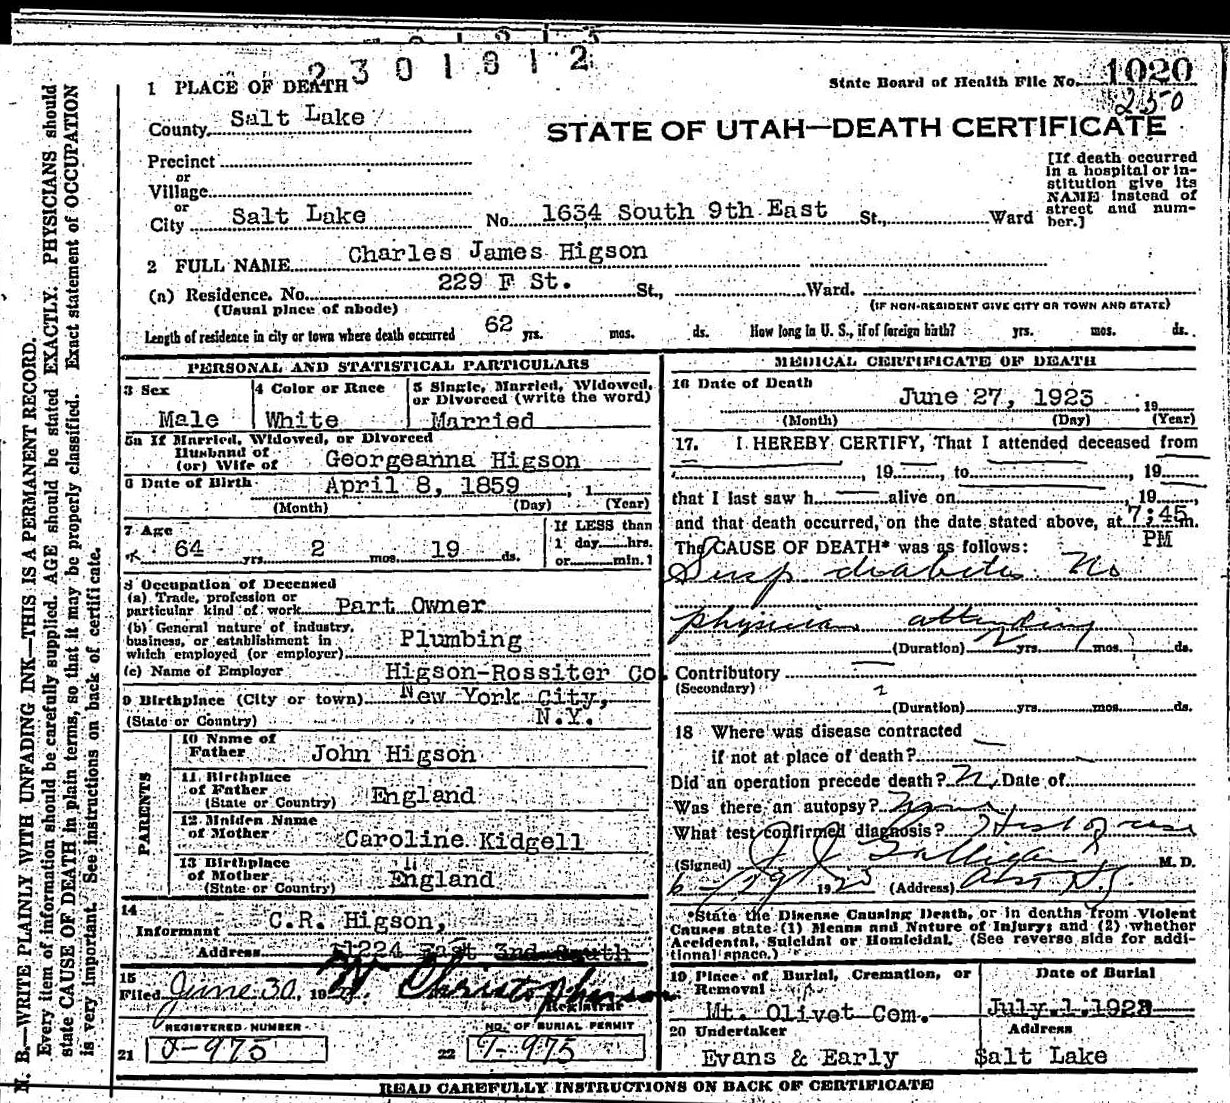 2301812
State Board of Health File No. 1020
250
1 PLACE OF DEATH
County Salt Lake
STATE OF UTAH—DEATH CERTIFICATE
Precinct
or
Village
or
City Salt Lake No. 1634 South 9th East St., Ward
[If death occurred
in a hospital or in-
stitution give its
NAME instead of
street and num-
ber.]
2 FULL NAME Charles James Higson
(a) Residence. No. 229 F St. St., Ward.
(Usual place of abode) (IF NON-RESIDENT GIVE CITY OR TOWN AND STATE)
Length of residence in city or town where death occurred 62 yrs. mos. ds. How long in U. S., if of foreign birth? yrs. mos. ds.
PERSONAL AND STATISTICAL PARTICULARS
3 Sex 4 Color or Race 5 Single, Married, Widowed,
or Divorced (write the word)
Male White Married
5a If Married, Widowed, or Divorced
Husband of
(or) Wife of Georgeanna Higson
6 Date of Birth April 8, 1859 , 1
(Month) (Day) (Year)
7 Age If LESS than
64 yrs. 2 mos. 19 ds. 1 day hrs.
or min. 1
8 Occupation of Deceased
(a) Trade, profession or
particular kind of work Part Owner
(b) General nature of industry,
business, or establishment in
which employed (or employer) Plumbing
(c) Name of Employer Higson-Rossiter Co.
9 Birthplace (City or town) New York City,
(State or Country) N.Y.
PARENTS
10 Name of
Father John Higson
11 Birthplace
of Father England
(State or Country)
12 Maiden Name
of Mother Caroline Kidgell
13 Birthplace
of Mother England
(State or Country)
14
Informant C.R. Higson,
Address 1224 East 3nd South
15
Filed June 30, 19 Christopherson
Registrar
REGISTERED NUMBER NO. OF BURIAL PERMIT
21 J-975 22 J-975
MEDICAL CERTIFICATE OF DEATH
16 Date of Death June 27, 1923 , 19
(Month) (Day) (Year)
17. I HEREBY CERTIFY, That I attended deceased from
, 19 , to , 19
that I last saw h alive on , 19 ,
and that death occurred, on the date stated above, at 7:45 m.
PM
The CAUSE OF DEATH* was as follows:
Susp diabetes No
physician attending
(Duration) yrs. mos. ds.
Contributory
(Secondary)
(Duration) yrs. mos. ds.
18 Where was disease contracted
if not at place of death?
Did an operation precede death? No Date of
Was there an autopsy?
What test confirmed diagnosis? Hist of case
(Signed) J J Galligan M. D.
6-29 1923 (Address)
*State the Disease Causing Death, or in deaths from Violent
Causes state (1) Means and Nature of Injury; and (2) whether
Accidental, Suicidal or Homicidal. (See reverse side for addi-
tional space.)
19 Place of Burial, Cremation, or
Removal Date of Burial
Mt. Olivet Cem. July 1, 1923
20 Undertaker Address
Evans & Early Salt Lake
READ CAREFULLY INSTRUCTIONS ON BACK OF CERTIFICATE
N. B.—WRITE PLAINLY WITH UNFADING INK—THIS IS A PERMANENT RECORD.
Every item of information should be carefully supplied. AGE should be stated EXACTLY. PHYSICIANS should
state CAUSE OF DEATH in plain terms, so that it may be properly classified. Exact statement of OCCUPATION
is very important. See instructions on back of certificate.